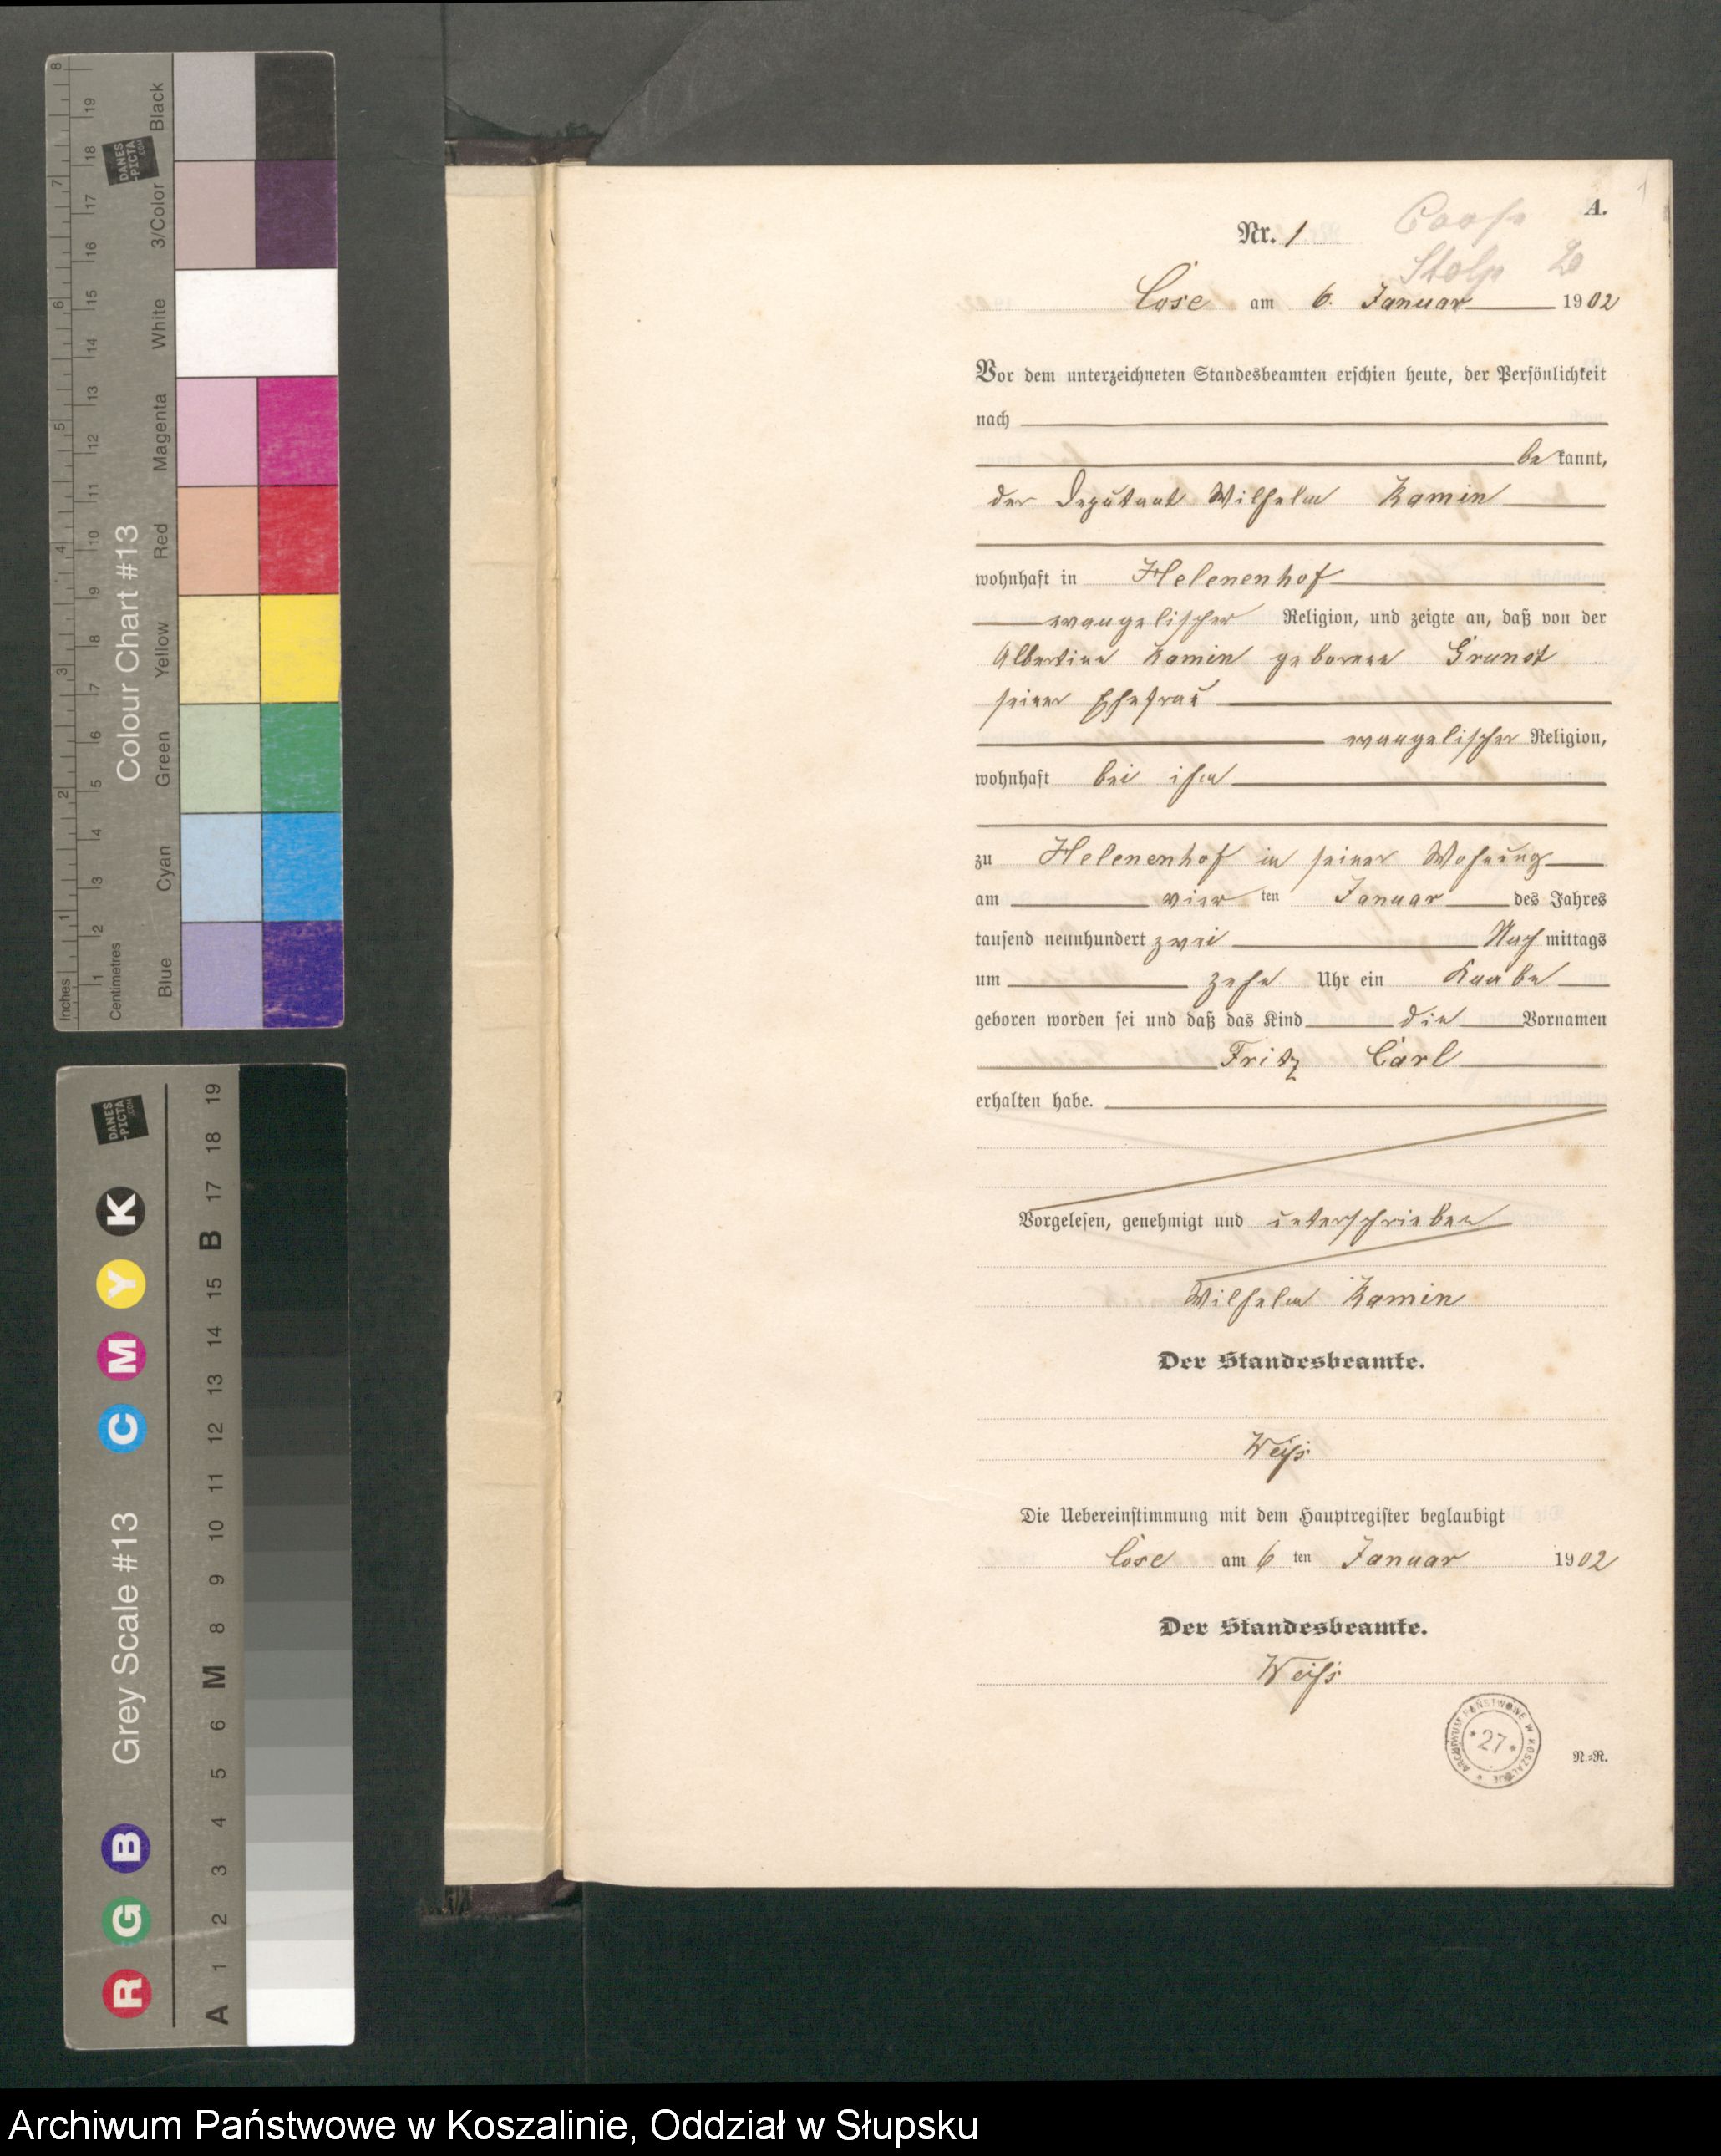 Inches 1 2 3 4 5 6 7 8
Centimetres 1 2 3 4 5 6 7 8 9 10 11 12 13 14 15 16 17 18 19
Colour Chart #13
DANES
-PICTA
.COM
Blue Cyan Green Yellow Red Magenta White 3/Color Black
Grey Scale #13
R G B C M Y K
DANES
-PICTA
.COM
A 1 2 3 4 5 6 M 8 9 10 11 12 13 14 15 B 17 18 19
1
A.
Nr. 1
Stolp
Cose am 6. Januar 1902
Vor dem unterzeichneten Standesbeamten erschien heute, der Persönlichkeit
nach
bekannt,
der Deputant Wilhelm Kamin
wohnhaft in Helenenhof
evangelischer Religion, und zeigte an, daß von der
Albertine Kamin geborene Grunst
seiner Ehefrau
evangelischer Religion,
wohnhaft bei ihm
zu Helenenhof in seiner Wohnung
am vier ten Januar des Jahres
tausend neunhundert zwei Nachmittags
um zehn Uhr ein Knabe
geboren worden sei und daß das Kind die Vornamen
Fritz Carl
erhalten habe.
Vorgelesen, genehmigt und unterschrieben
Wilhelm Kamin
Der Standesbeamte.
Weiß
Die Uebereinstimmung mit dem Hauptregister beglaubigt
Cose am 6 ten Januar 1902
Der Standesbeamte.
Weiß
ARCHIWUM PAŃSTWOWE W KOSZALINIE
* 27 *
N.-R.
Archiwum Państwowe w Koszalinie, Oddział w Słupsku